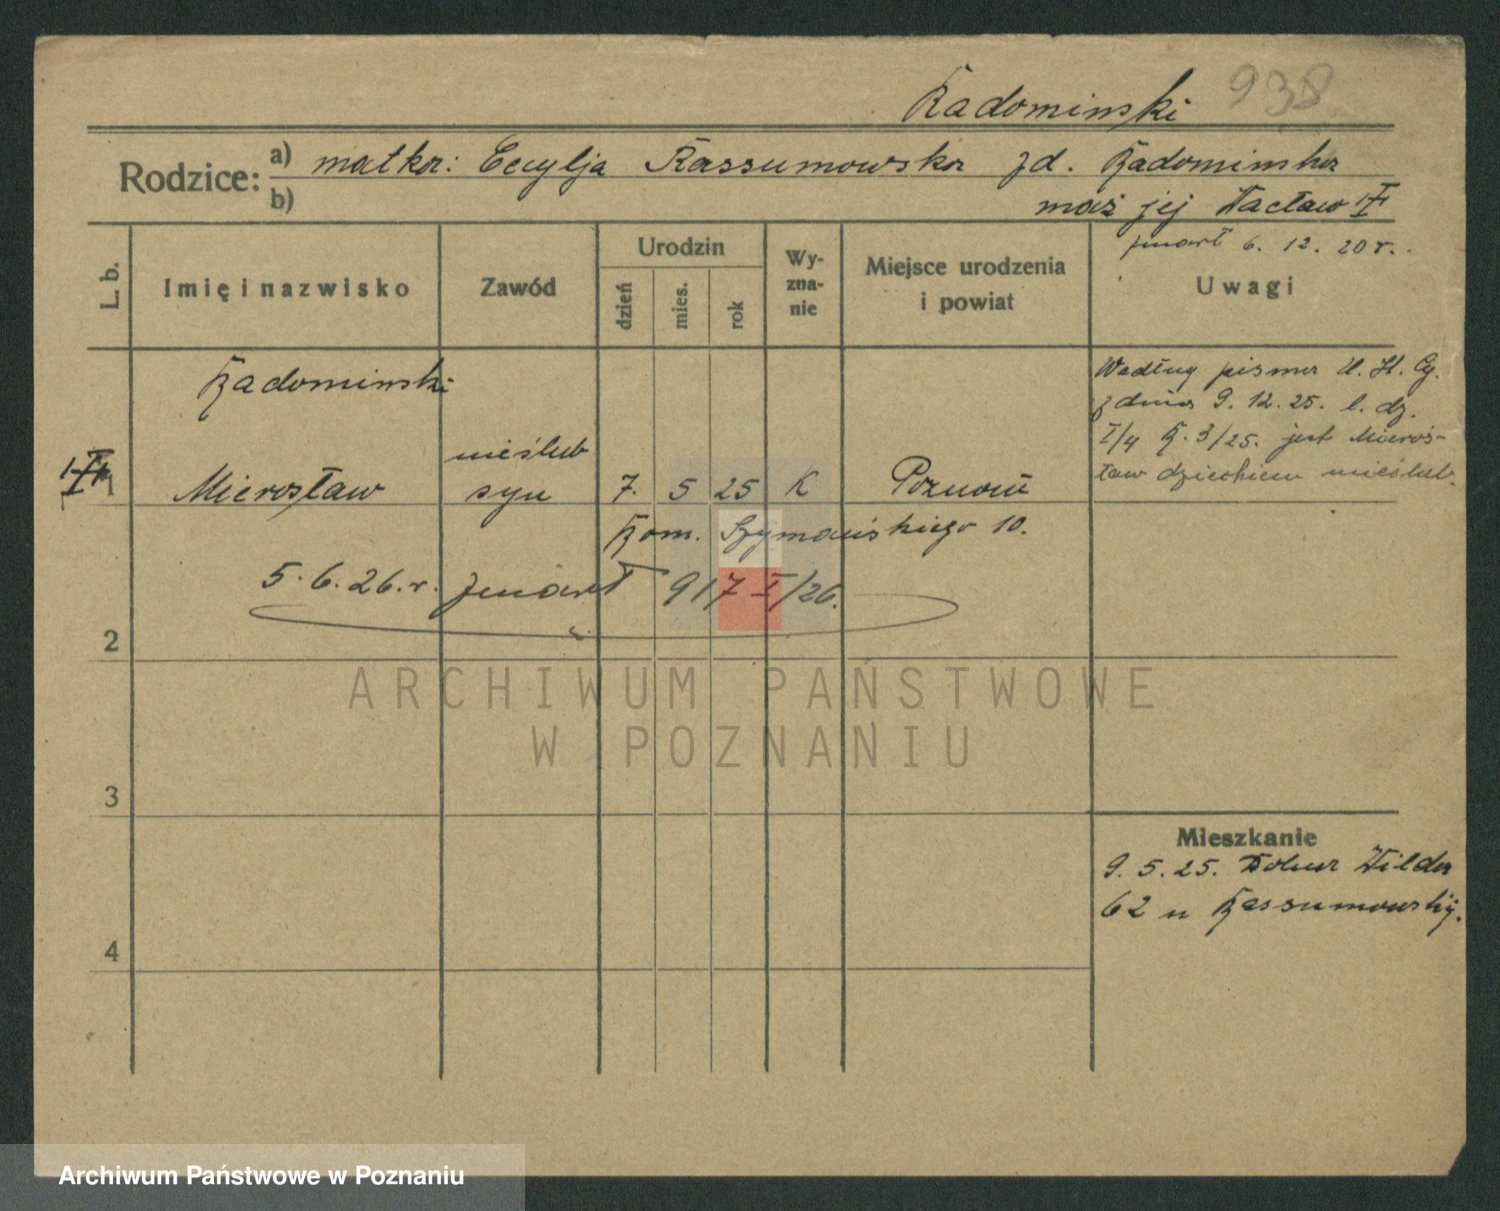 Radominski 938
Rodzice: a) matka: Cecylja Rassumowska zd. Radominska
b) mąż jej Wacław
zmarł 6. 12. 20 r.
L. b. Imię i nazwisko Zawód Urodzin dzień mies. rok Wy-zna-nie Miejsce urodzenia i powiat Uwagi
Radominski
Mierosław nieślub syn 7. 5 25 K Poznań
Według pisma U. St. Cy.
z dnia 9. 12. 25. l. dz.
I/4 R. 3/25. jest Mieros-
ław dzieckiem nieślub.
Rom. Szymańskiego 10.
5. 6. 26. r. zmarł 917 I/26.
2
ARCHIWUM PAŃSTWOWE
W POZNANIU
3
Mieszkanie
9. 5. 25. Dolna Wilda
62 u Rassumowskij.
4
Archiwum Państwowe w Poznaniu